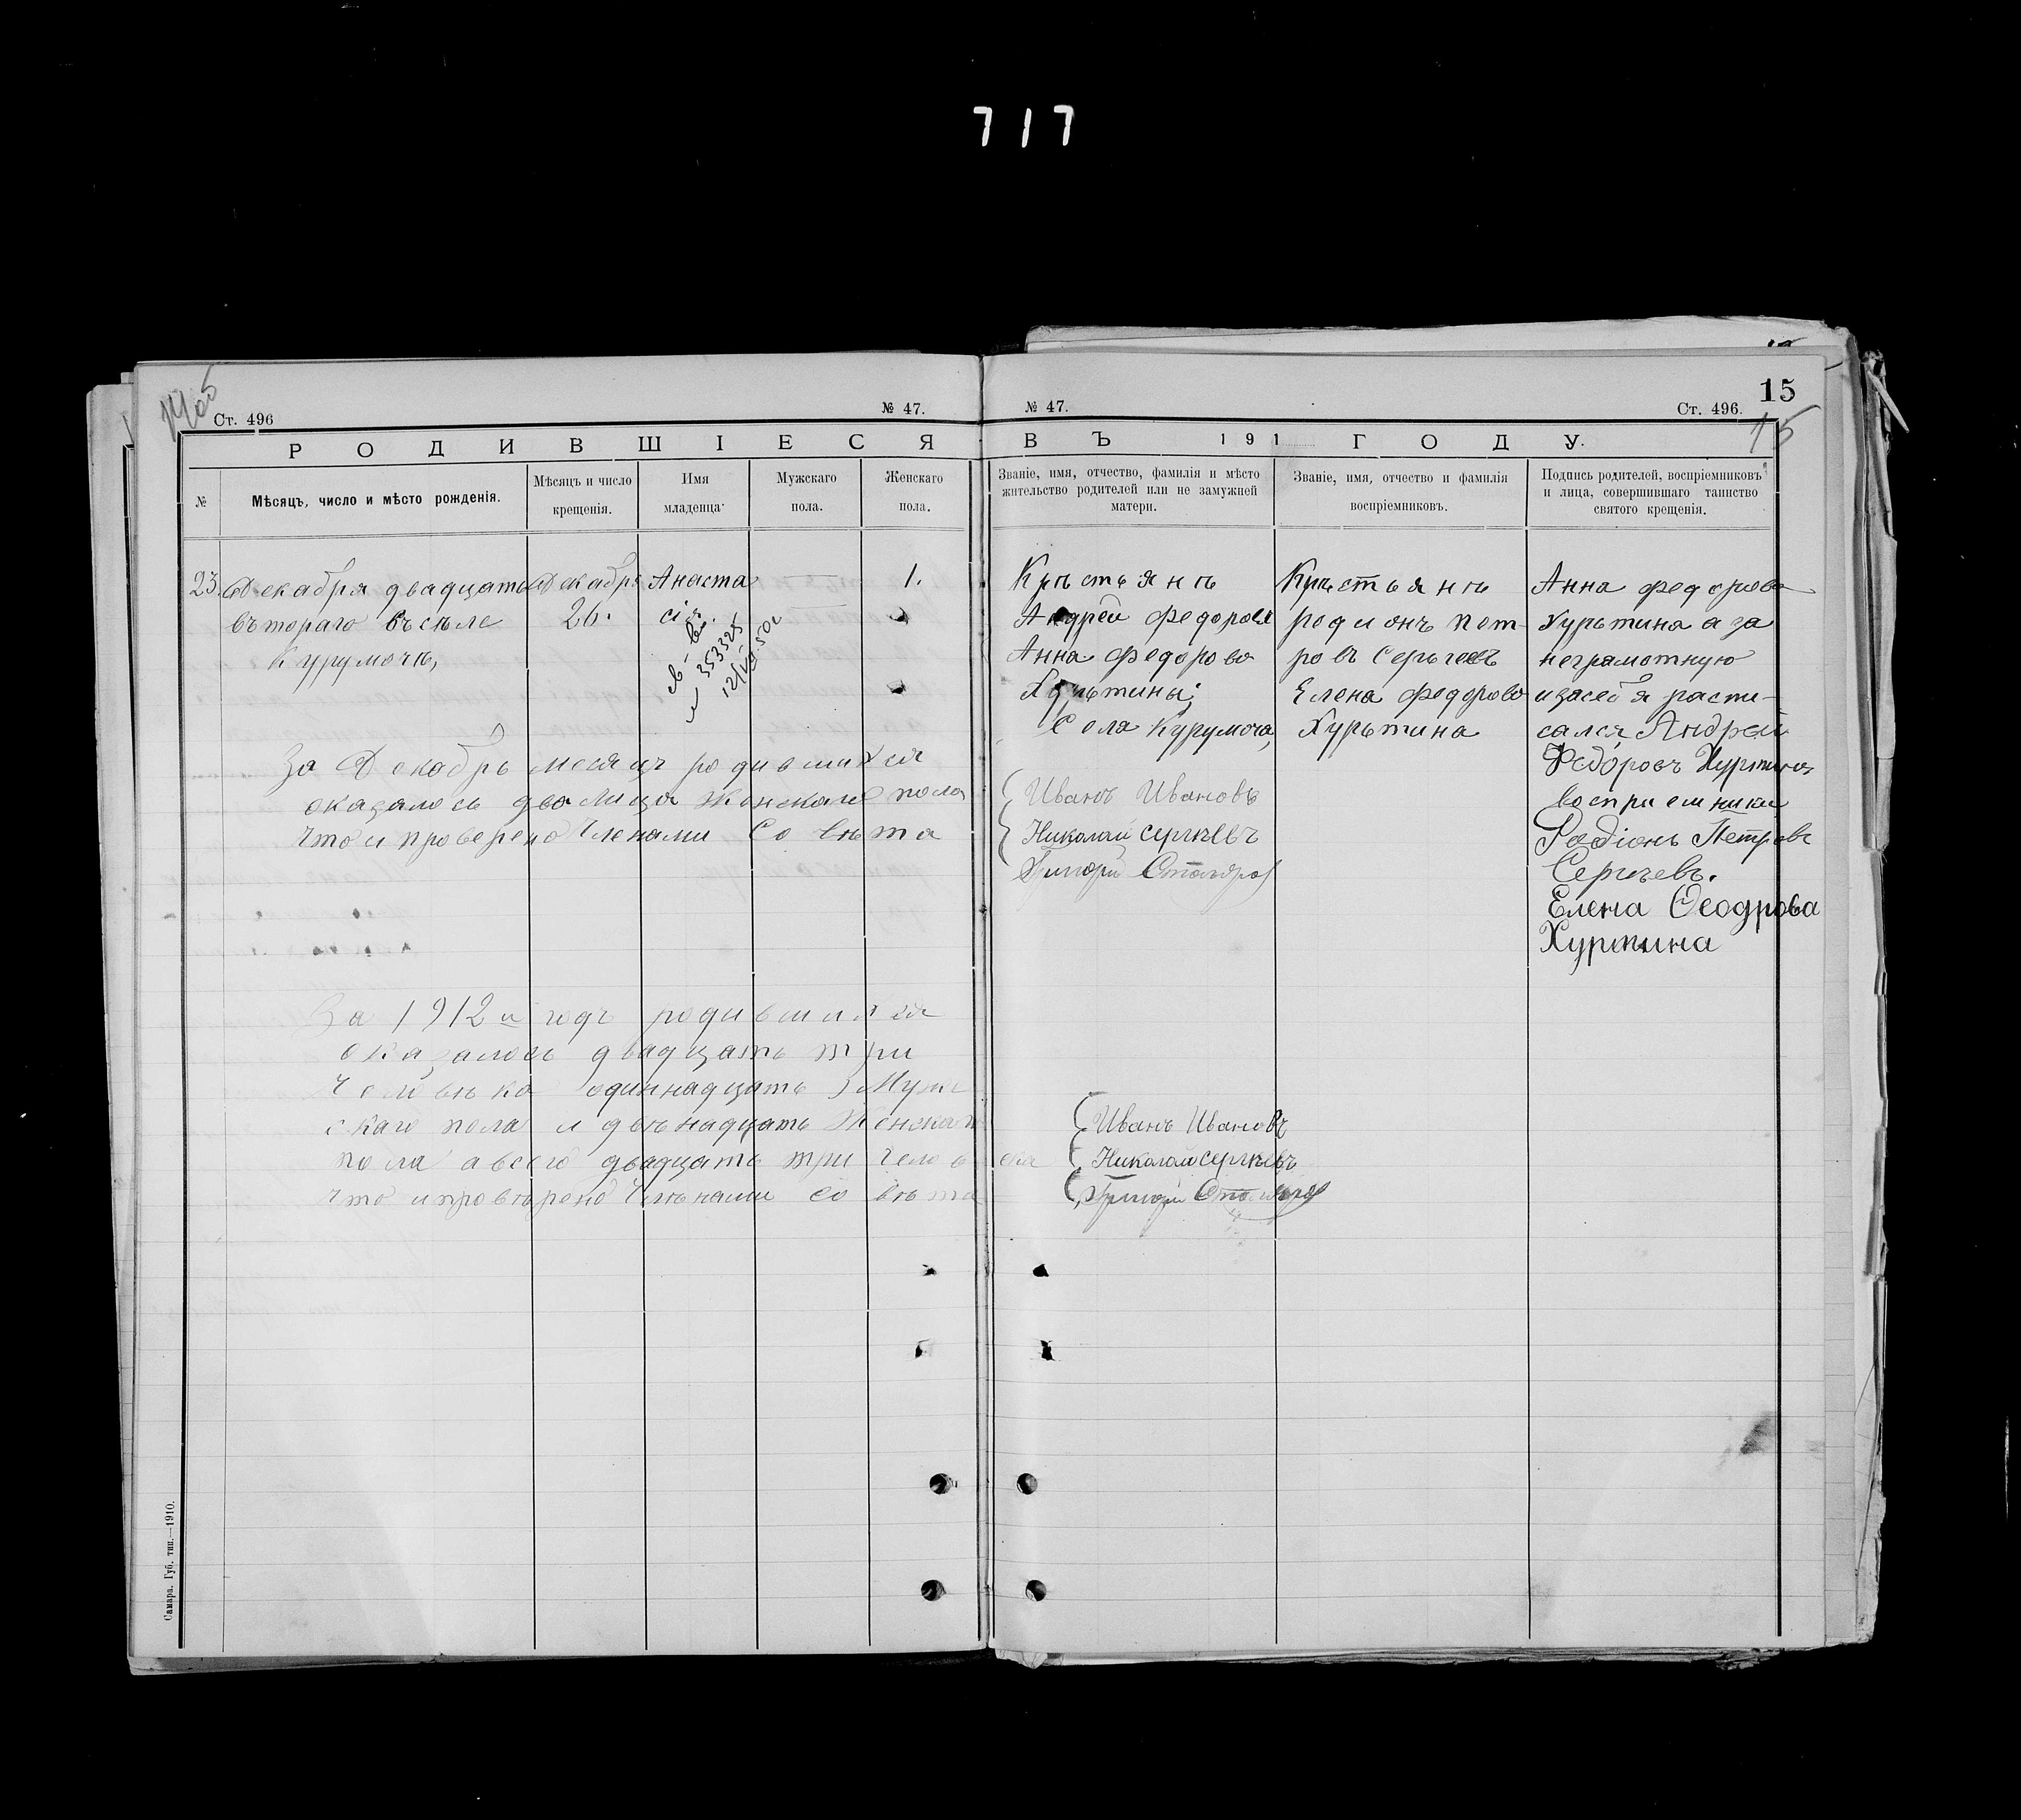 717
15
15
Ст. 496
№ 47.
№ 47.
Ст. 496.
РОДИВШІЕСЯ ВЪ 191 ГОДУ.
№
Мѣсяцъ, число и мѣсто рожденія.
Мѣсяцъ и число крещенія.
Имя младенца
Мужскаго пола.
Женскаго пола.
Званіе, имя, отчество, фамилія и мѣсто
жительство родителей или не замужней
матери.
Званіе, имя, отчество и фамилія
воспріемниковъ.
Подпись родителей, воспріемниковъ
и лица, совершившаго таинство
святого крещенія.
23. Декабря двадцать
втораго въ селе
Курумочѣ,
Декабря
26.
Анаста
сія.
св-во
353325
1.
Крѣстьянѣ
Андрей Федоровъ
Анна Федорово
Хурьтины;
Села Курумоча,
Крѣстьянѣ
родионъ пет-
ровъ Серьгеевъ
Елена Федорово
Хурьтина
Анна федорова
Хурьтина а за
неграмотную
и за себя распи-
сался Андрей
Федоровъ Хуртинъ
восприемники
Родіонъ Петровъ
Сергѣевъ.
Елена Ѳеодрова
Хуртина
За Декабрь месяцъ родившихся
оказалось два лица женскаго пола
что и проверено Членами Совѣта
Иванъ Ивановъ
Николай сергѣевъ
Григорій Столяров
За 1912 й годъ родившихся
оказалось двадцать три
Человѣка одиннадцать Муж
скаго пола и двѣнадцать Женскаго
пола а всего двадцать три Человека
что и провѣрено Членами Совѣта
Иванъ Ивановъ
Николай сергѣевъ
Григорій Столяров
Самара. Губ. тип.—1910.